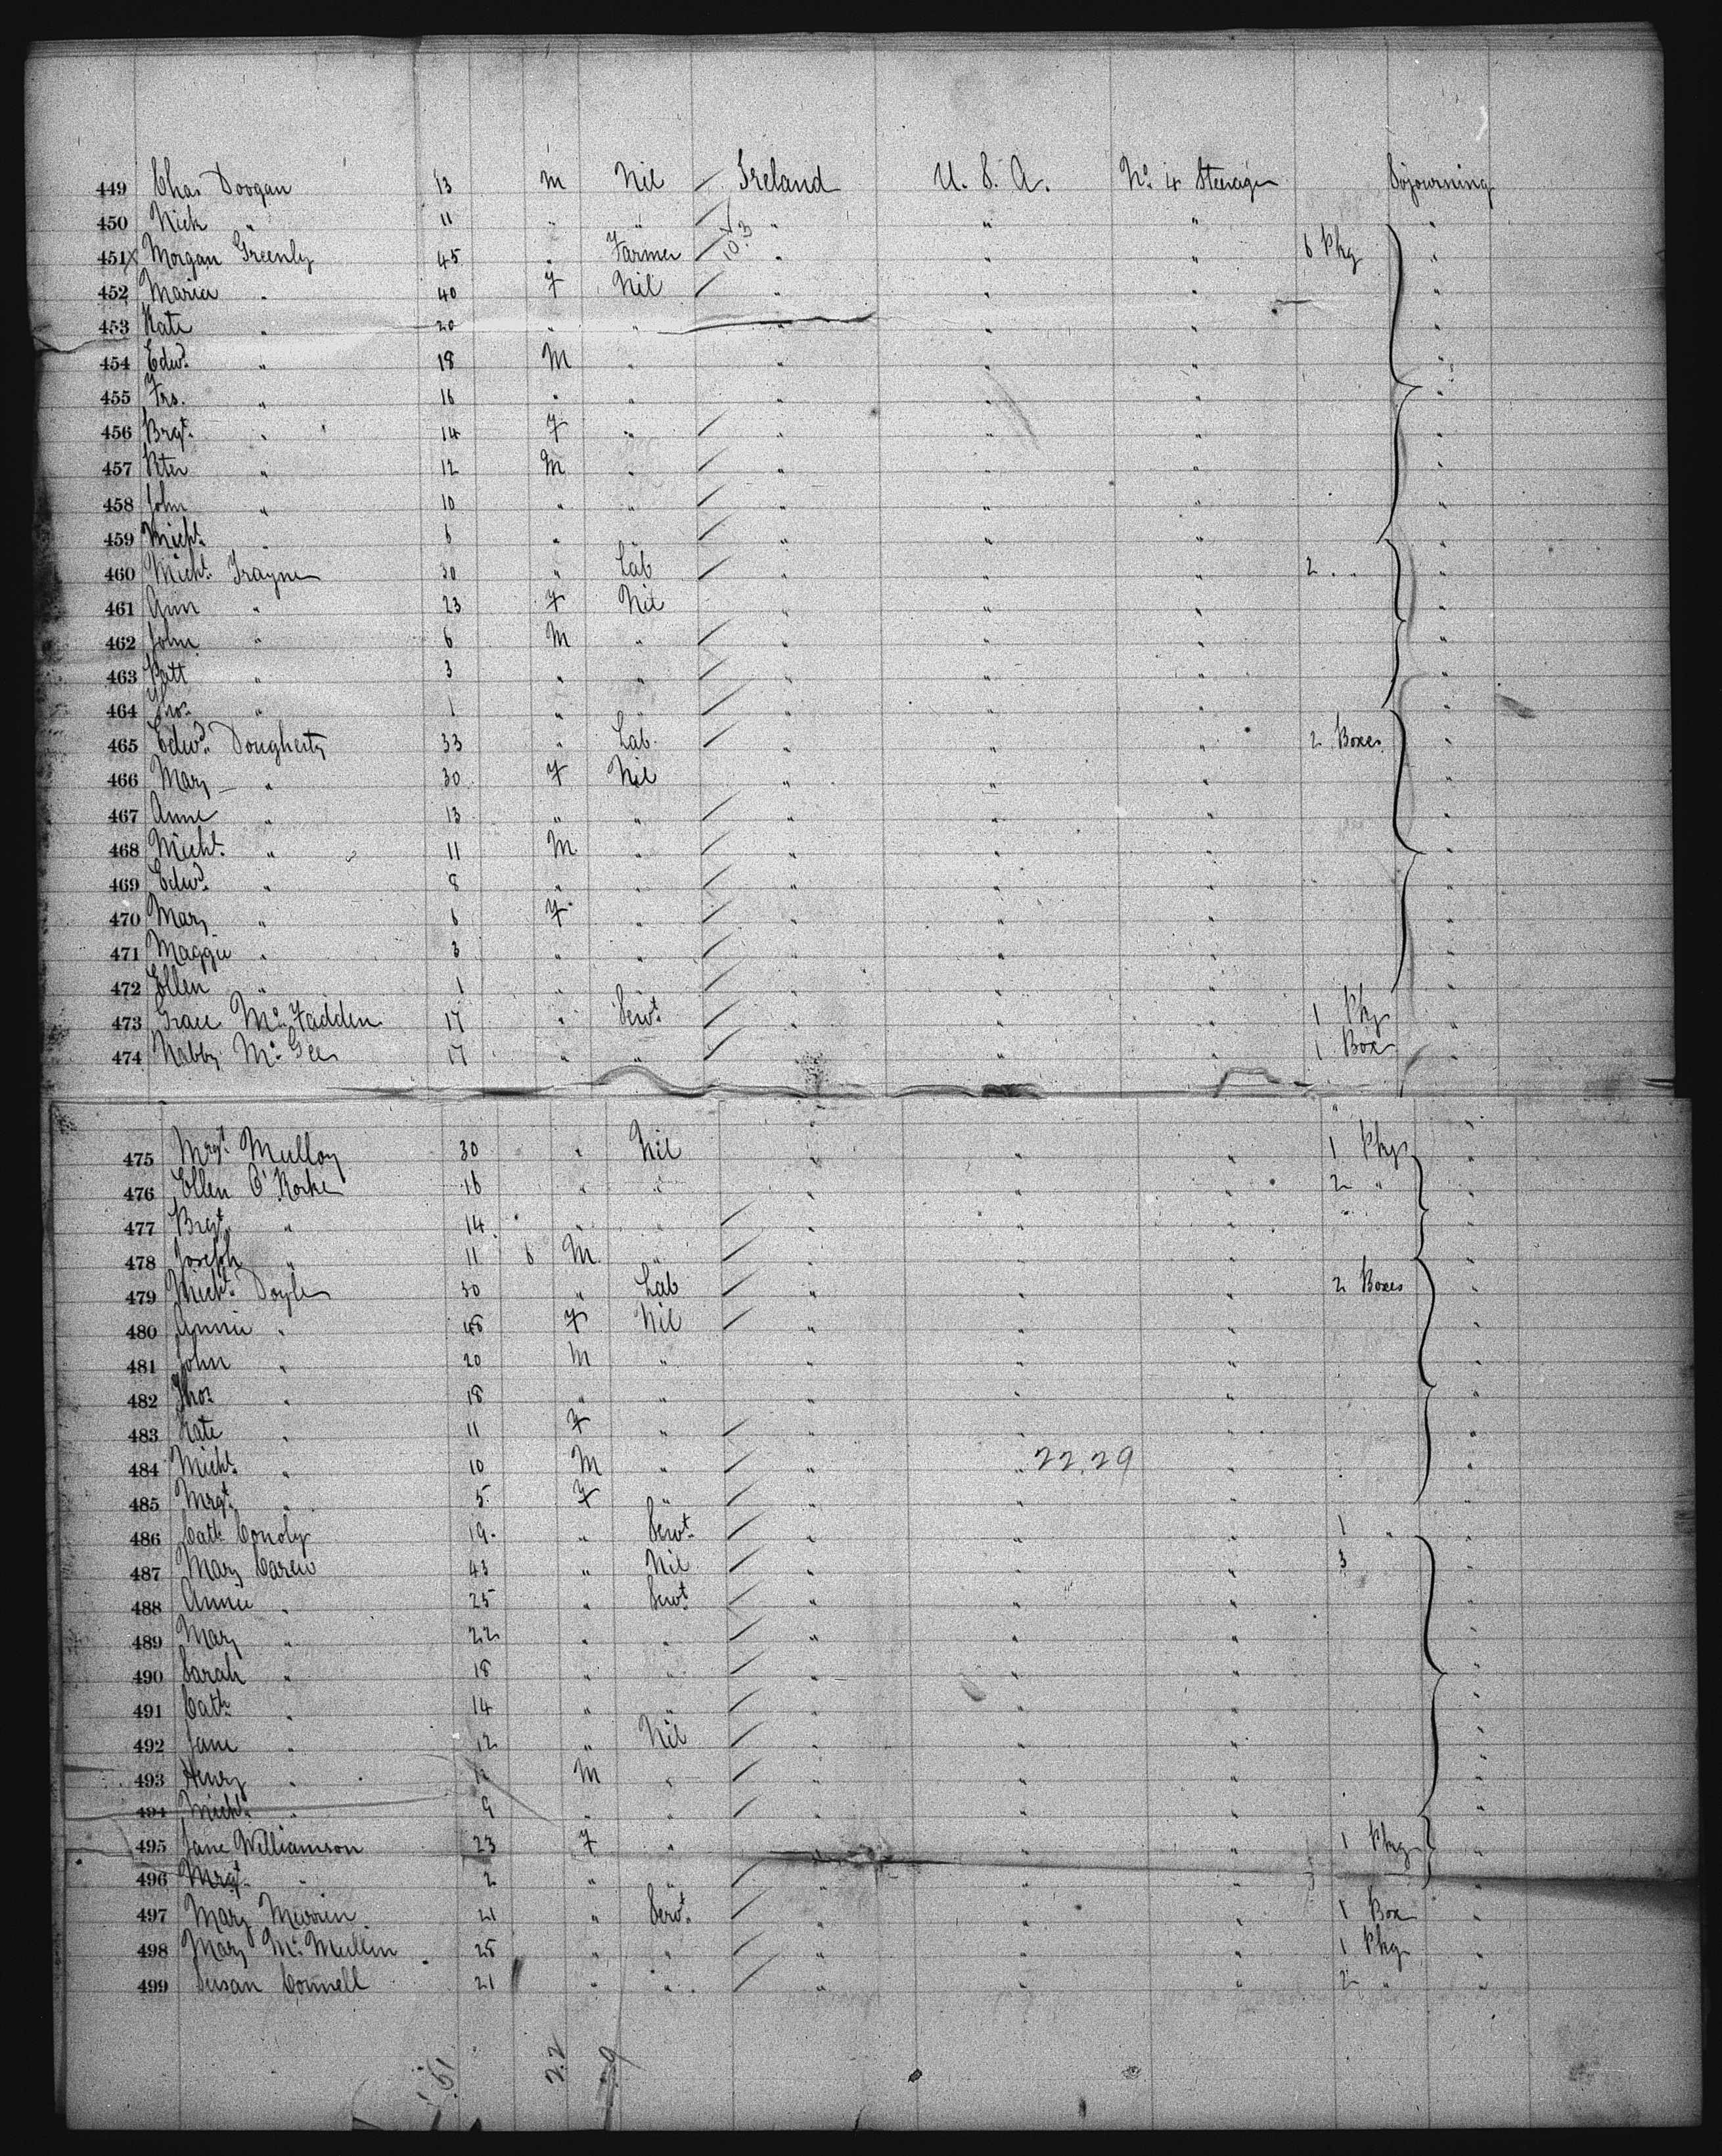 449 Chas Doogan 13 M Nil Ireland U. S. A. No. 4 Steerage Sojourning
450 Nick " 11 " " " " " "
451 Morgan Greenly 45 " Farmer 10.3 " " " 6 Pkg "
452 Maria " 40 F Nil " " " "
453 Kate " 20 " " " " " "
454 Edwd. " 18 M " " " " "
455 Frs. " 16 " " " " " "
456 Brgt. " 14 F " " " " "
457 Peter " 12 M " " " " "
458 John " 10 " " " " " "
459 Michl. " 6 " " " " " "
460 Michl. Trayner 30 " Lab " " " 2 " "
461 Ann " 23 F Nil " " " "
462 John " 6 M " " " " "
463 Patt " 3 " " " " " "
464 Thos. " 1 " " " " " "
465 Edwd. Dougherty 33 " Lab. " " " 2 Boxes "
466 Mary " 30 F Nil " " " "
467 Anne " 13 " " " " " "
468 Michl. " 11 M " " " " "
469 Edwd. " 8 " " " " " "
470 Mary " 6 F " " " " "
471 Maggie " 3 " " " " " "
472 Ellen " 1 " " " " " "
473 Grace McFadden 17 " Servt " " " 1 Pkg "
474 Nabby McGee 17 " " " " " 1 Box "
475 Mrgt. Mulloy 30 " Nil " " " 1 Pkg "
476 Ellen O'Rorke 16 " " " " " 2 " "
477 Brgt. " 14 " " " " " "
478 Joseph " 11 6 M " " " " "
479 Michl. Doyle 50 " Lab " " " 2 Boxes "
480 Annie " 45 F Nil " " " "
481 John " 20 M " " " " "
482 Thos. " 18 " " " " " "
483 Kate " 11 F " " " " "
484 Michl. " 10 M " " " 22.29 " "
485 Mrgt. " 5 F " " " " "
486 Cath Conoly 19 " Servt. " " " 1 " "
487 Mary Carew 43 " Nil " " " 3 "
488 Annie " 25 " Servt " " " "
489 Mary " 22 " " " " " "
490 Sarah " 18 " " " " " "
491 Cath " 14 " " " " " "
492 Jane " 12 " Nil " " " "
493 Henry " M " " " " "
494 Michl. " 9 " " " " " "
495 Jane Williamson 23 F " " " " 1 Pkg "
496 Mrgt. " 2 " " " " " "
497 Mary 21 " Servt. " " " 1 Box "
498 Mary McMullin 25 " " " " " 1 Pkg "
499 Susan Connell 21 " " " " " 2 " "
22